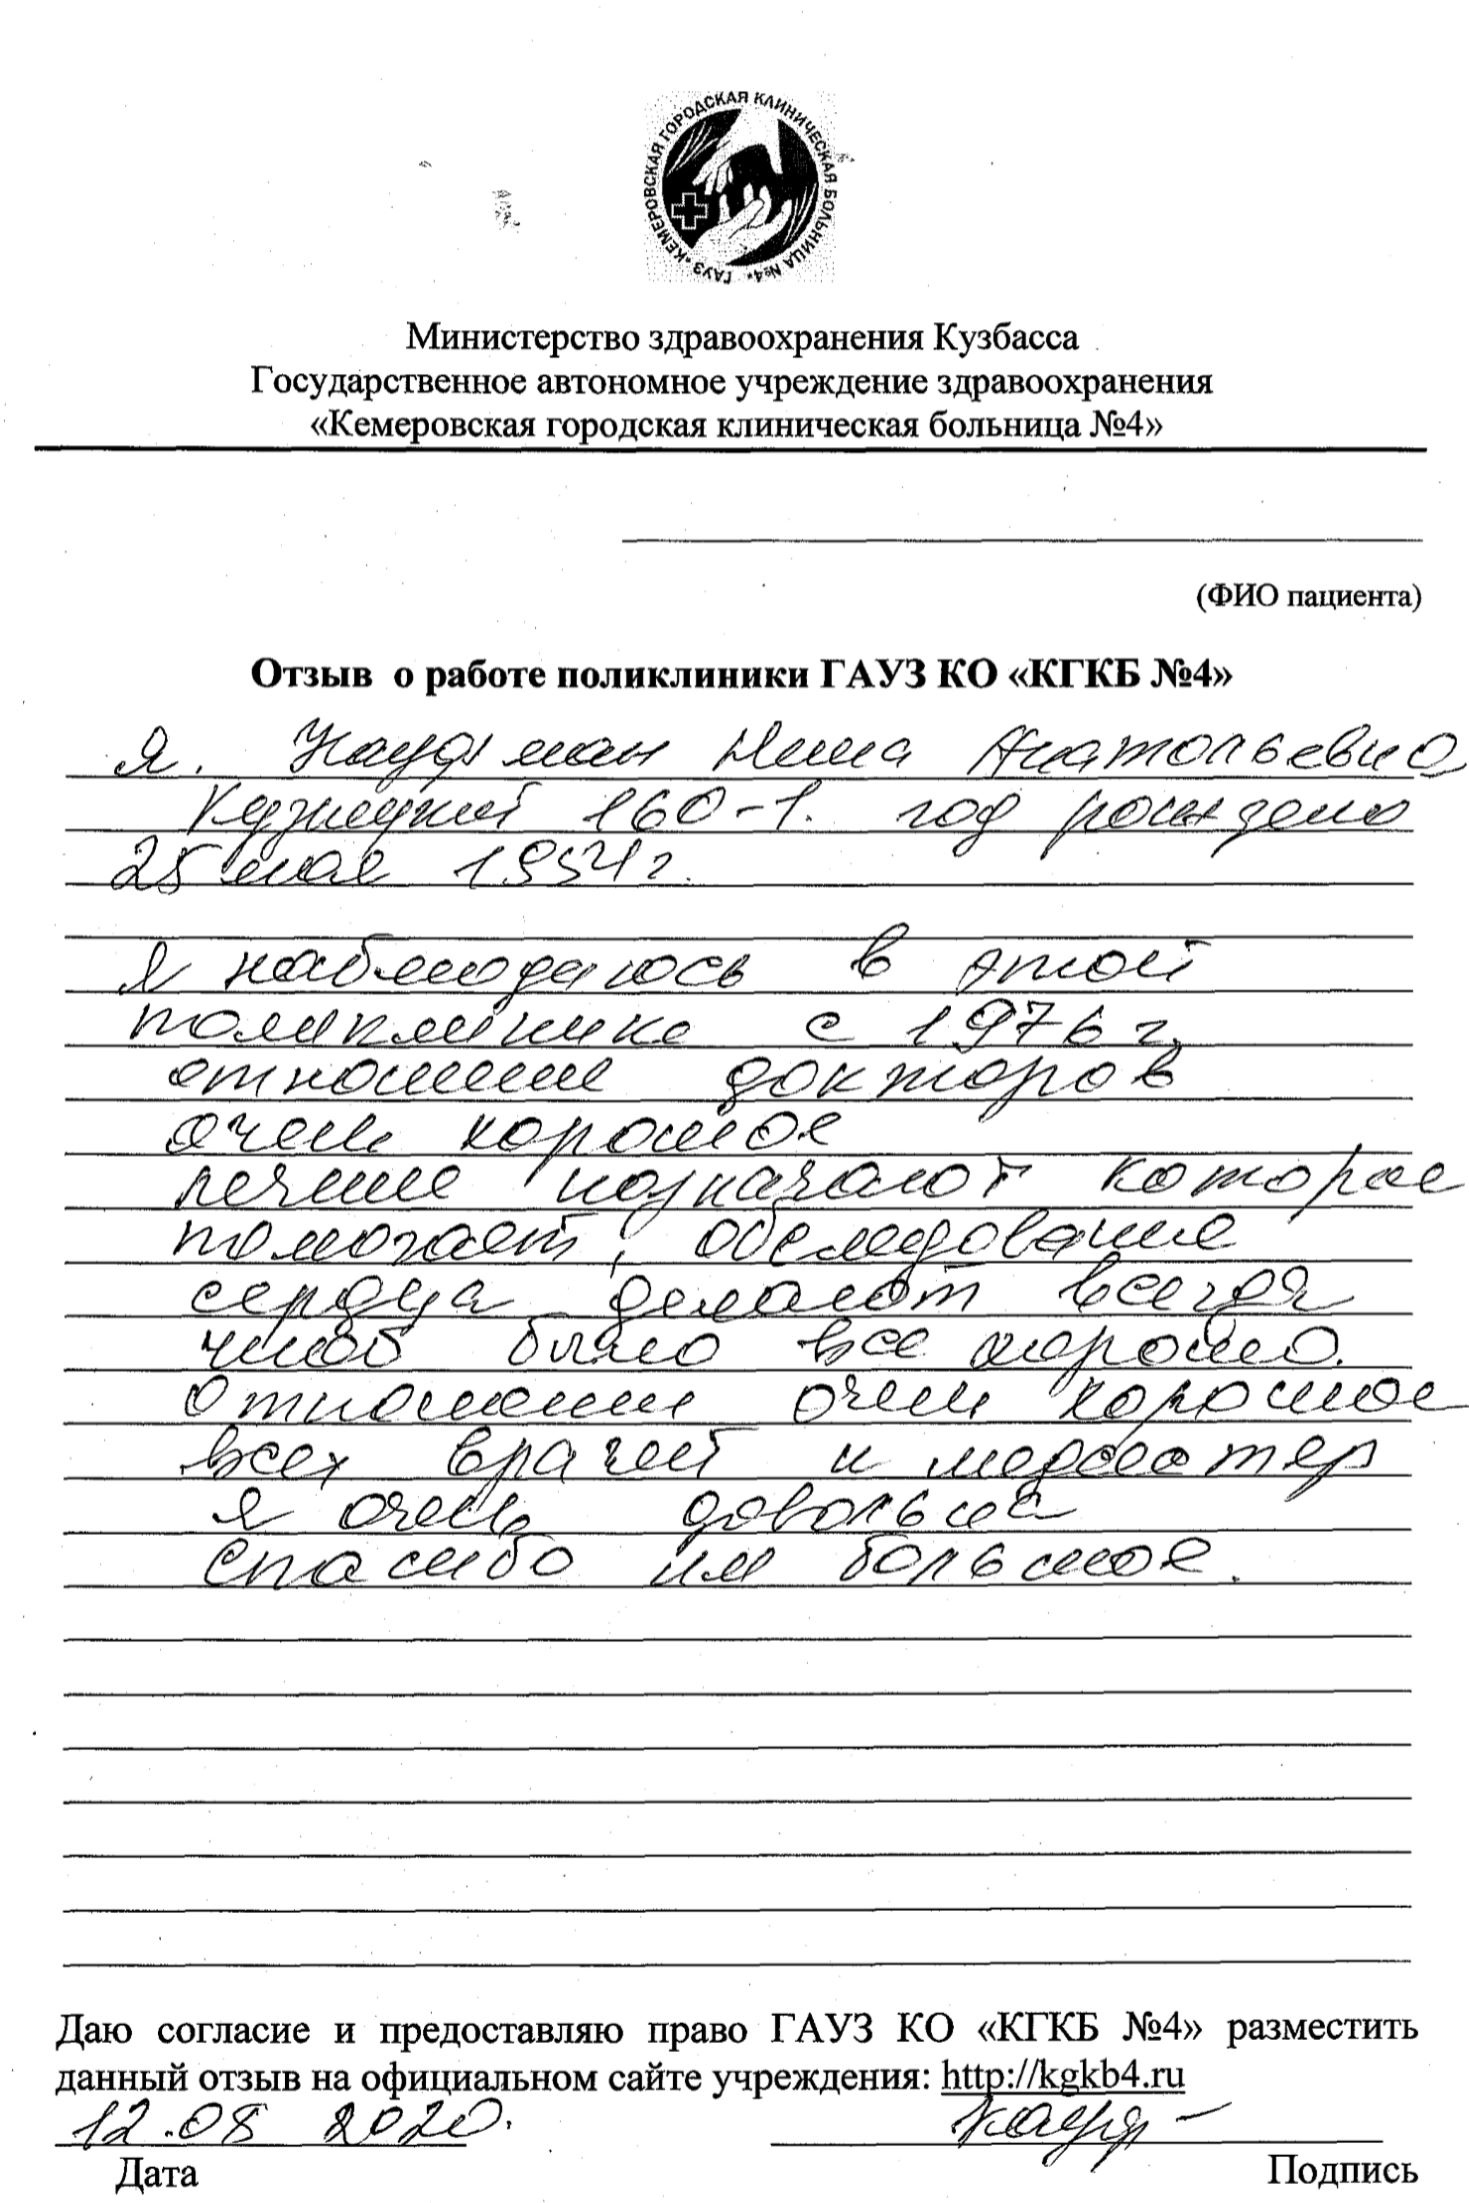 ГАУЗ «КЕМЕРОВСКАЯ ГОРОДСКАЯ КЛИНИЧЕСКАЯ БОЛЬНИЦА №4»
Министерство здравоохранения Кузбасса
Государственное автономное учреждение здравоохранения
«Кемеровская городская клиническая больница №4»
(ФИО пациента)
Отзыв о работе поликлиники ГАУЗ КО «КГКБ №4»
Я. Кауфман Нина Анатольевно
Кузнецкий 160-1. год рождено
25 мая 1954 г.
Я наблюдаюсь в этой
поликлинике с 1976 г.
отношение докторов
очень хорошое
лечение назначают которое
помогает, обследование
сердца делают всегда
чтоб было все хорошо.
отношение очень хорошое
всех врачей и медсестер
я очень довольна
спасибо им большое.
Даю согласие и предоставляю право ГАУЗ КО «КГКБ №4» разместить
данный отзыв на официальном сайте учреждения: http://kgkb4.ru
12.08 2020. Кауф-
Дата Подпись